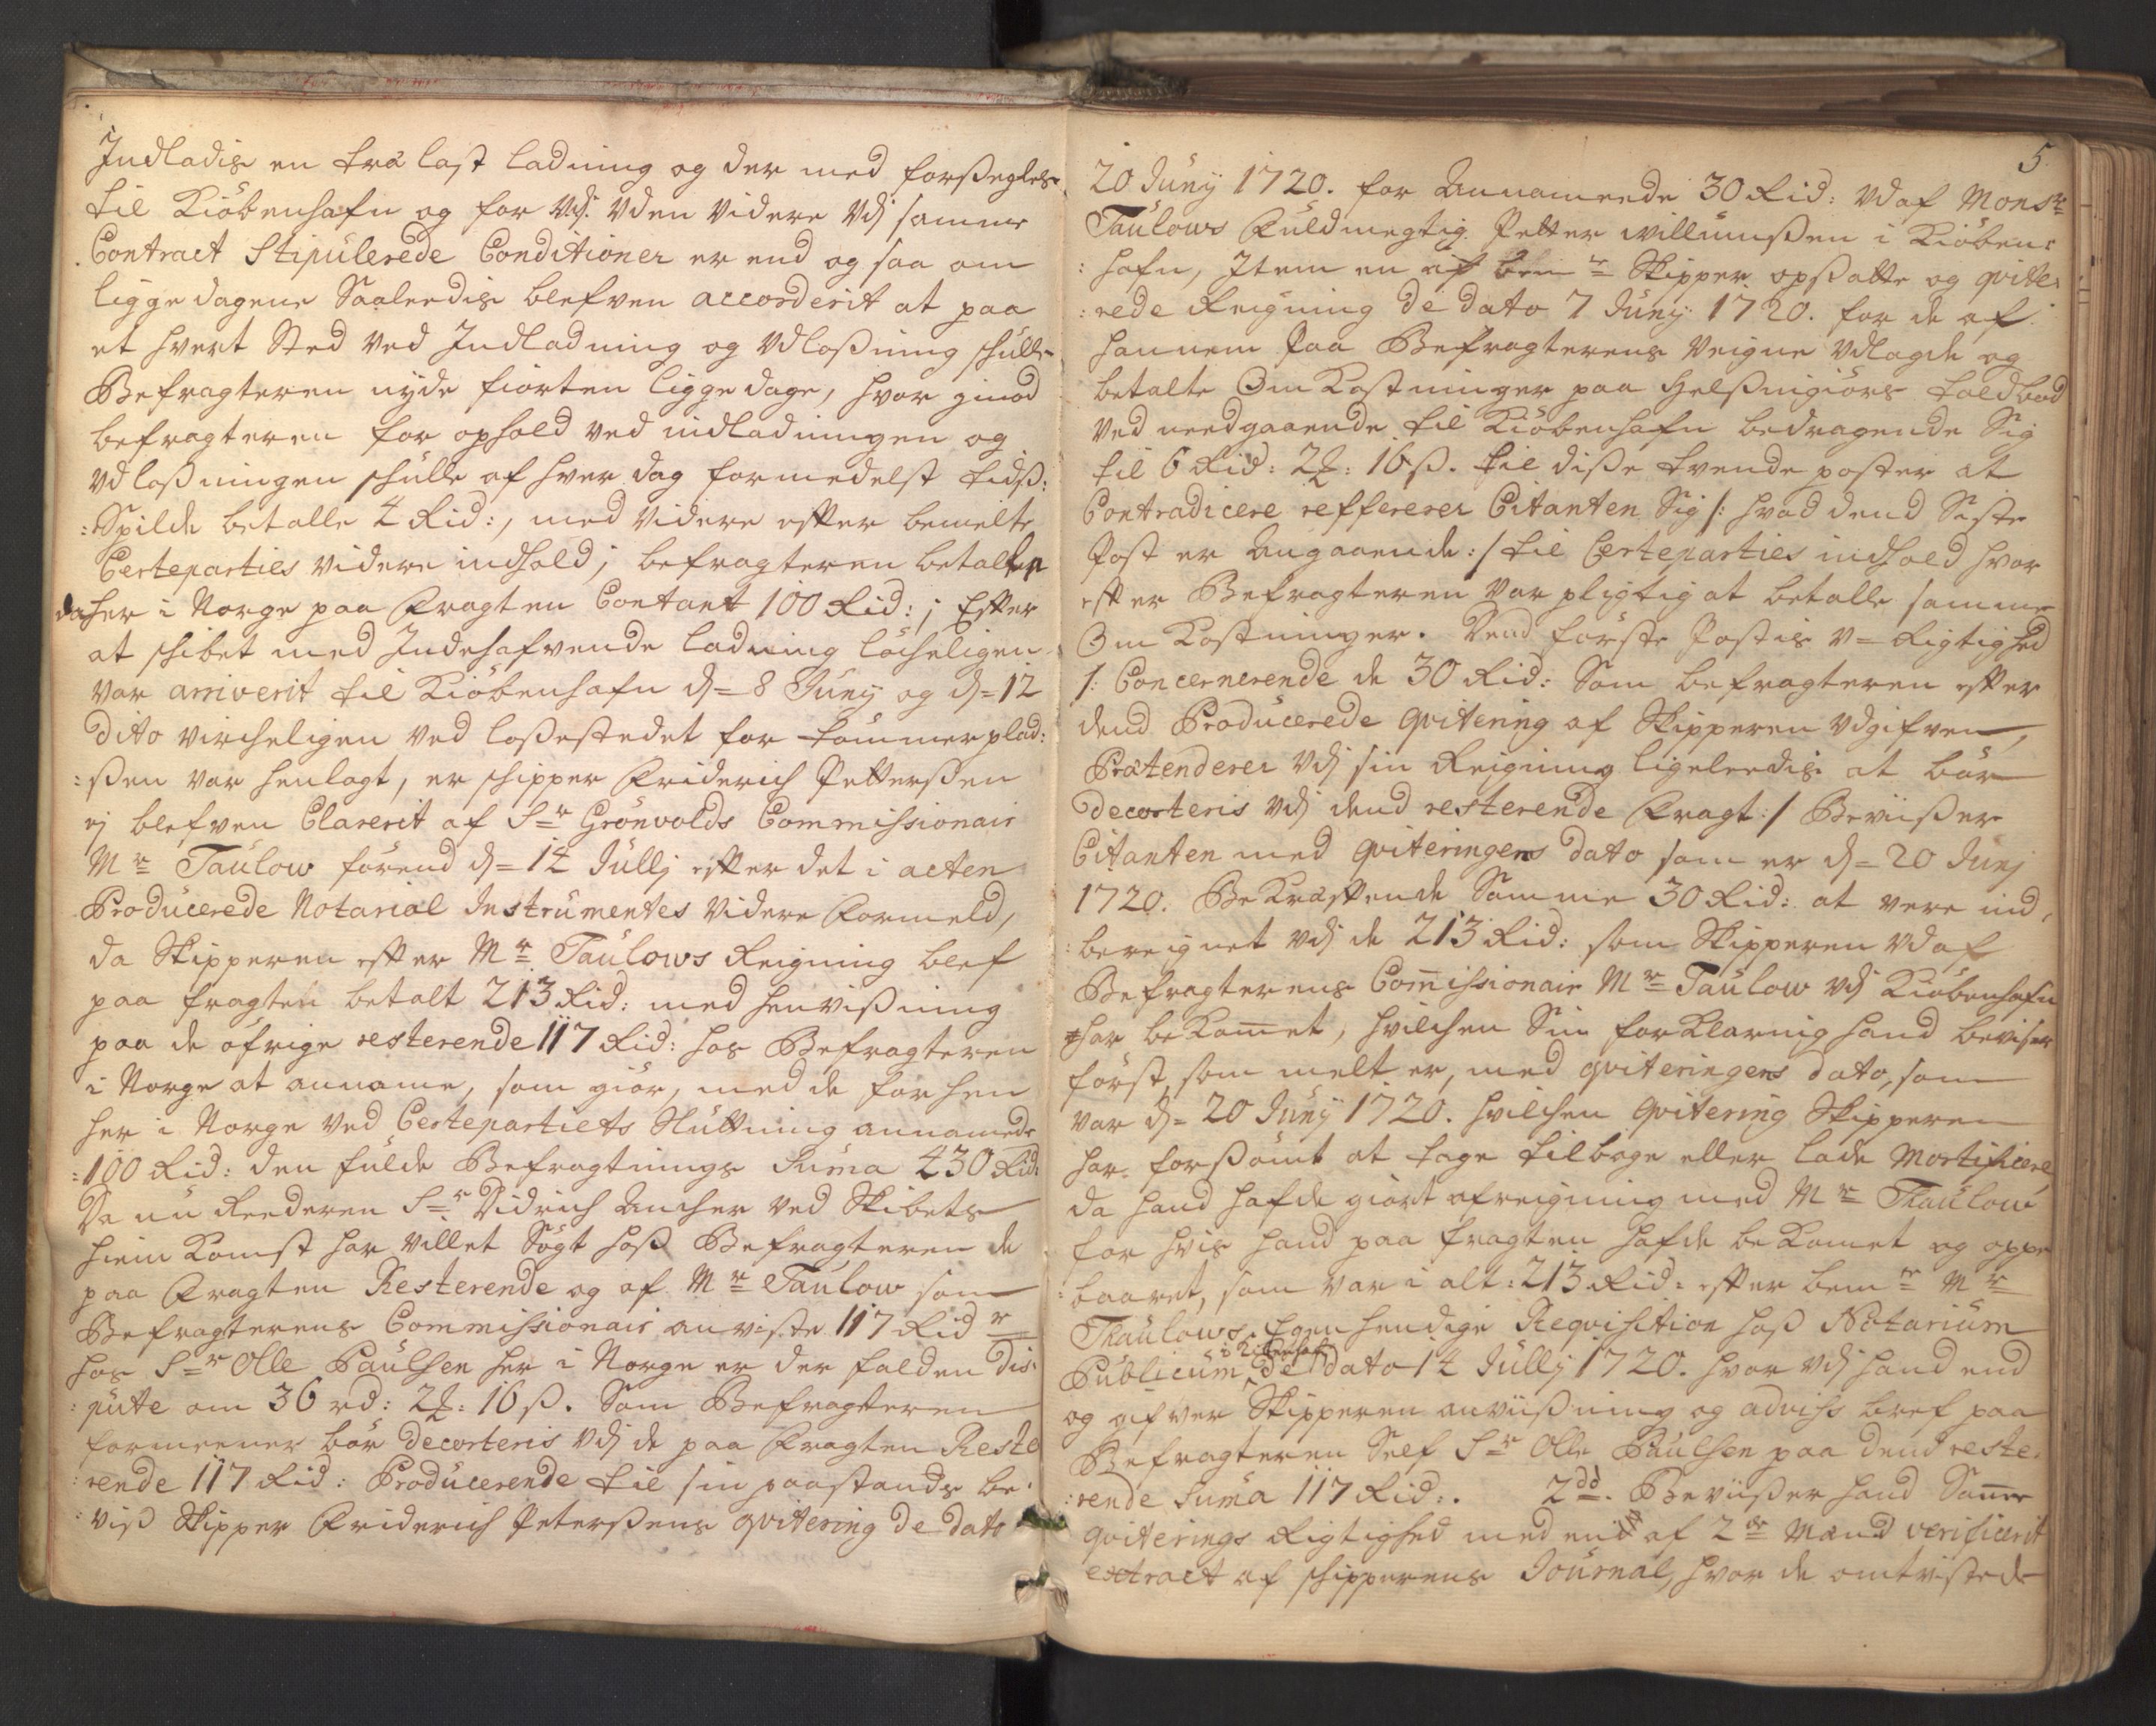 Indladis en træ last ladning og der med forsegles
til Kiöbenhafn og for Vdj. Vden Videre Vdj samme
Contract Stipülerede Conditioner er end og saa om
ligge dagene Saaleedis blefven accorderit at paa
et hvert Sted ved Indladning og Vdlossning skulle
Befragteren nyde fiorten ligge dage, hvor imod
befragteren for ophold ved indladningen og
Vdlossningen skulle af hver dag formedelst tids:
:Spilde betalle 4 Rid:, med Videre efter bemelte
Certeparties videre indhold; befragteren betalte
da her i Norge paa Fragten Contant 100 Rid:; Efter
at skibet med Indehafvende ladning löcheligen
var arriverit til Kiöbenhafn d= 8 Juny og d= 12
dito vircheligen ved lossestedet for tömmerplad:
:ssen var henlagt, er skipper Friderich Petterssen
ej blefven Clarerit af Sr Grönvolds Commissionair
Mr Taülow förend d= 14 Jully efter det i acten
Prodücerede Notarial Instrumentes Videre Formeld,
da Skipperen efter Mr Taülows Reigning blef
paa fragten betalt 213 Rid: med henvissning
paa de öfrige resterende 117 Rid: hos Befragteren
i Norge at annamme, som giör, med de forhen
her i Norge ved Certepartiets Slüttning annamede
:100 Rid: den fulde Befragtnings Suma 430 Rid:
Da nu Reederen Sr Didrich Ancher ved Skibets
hiem Komst har villet Sögt hoss Befragteren de
paa Fragten Resterende og af Mr Taulow som
Befragterens Commissionair anviste 117 Rid r
hos Sr Olle Paülsen her i Norge er der falden dis:
:püte om 36 rd: 2 : 16 ß. Som Befragteren
formeener bör decorteris Vdj de paa Fragten Reste
:rende 117 Rid: Prodücerende til sin paastands be:
:viss Skipper Friderich Peterssens qvitering de dato
5.
20 Juny 1720. for Annameede 30 Rid: Vdaf Monsr
Taülows Fuldmegtig Petter Willumssen i Kiöben:
:hafn, Item en af bem te Skipper opsatte og qvite:
:rede Reigning de dato 7 Juny 1720. for de af
hannem Paa Befragterens Veigne Vdlagde og
betalte Om Kostninger paa Helssingiörs toldbod
Ved needgaaende til Kiöbenhafn bedragende Sig
til 6 Rid: 2 : 16 ß. til disse tvende poster at
Contradicere reffererer Citanten Sig /: hvad dend Siste
Post er Angaaende :/ til Certeparties indhold hvor
efter Befragteren var pligtig at betalle samme
Om Kostninger. Dend förste Postis V= Rigtighed
/: Concernerende de 30 Rid: Som befragteren efter
dend Prodücerede qvitering af Skipperen Vdgifven,
Prætenderer Vdj sin Reigning ligeleedis at bör
decorteris Vdj dend resterende Fragt :/ Beviisser
Citanten med qviteringens dato som er d= 20 Junj
1720. Bekræftende Samme 30 Rid: at vere ind,
:bereignet Vdj de 213 Rid: som Skipperen Vdaf
Befragterens Comissionair Mr Taulow Vdj Kiöbenhafn
har bekomet, hvilchen Sin forklaring hand beviser
först, som melt er, med qviteringens dato, som
var d= 20 Juny 1720. hvilchen qvitering Skipperen
har forssömt at tage tilbage eller lade Mortificere
da hand hafde giort afreigning med Mr Thaülow
for hvis hand paa fragten hafde bekomet og oppe
:baaret, som var i alt: 213 Rid: efter bem te Mr
Thaülows Egenhendige Reqvisition hoss Notarium
Publicum i Kiöbenhafn de dato 14 Jullj 1720. hvor Vdj hand end
og gifver Skipperen anviissning og advis bref paa
Befragteren Self Sr Olle Paülsen paa dend reste:
:rende Suma 117 Rid:. 2dd. Beviisser hand Same
qviterings Rigtighed med en af 2de Mænd verificerit
extract af skipperens Journal, hvor de omtvistede